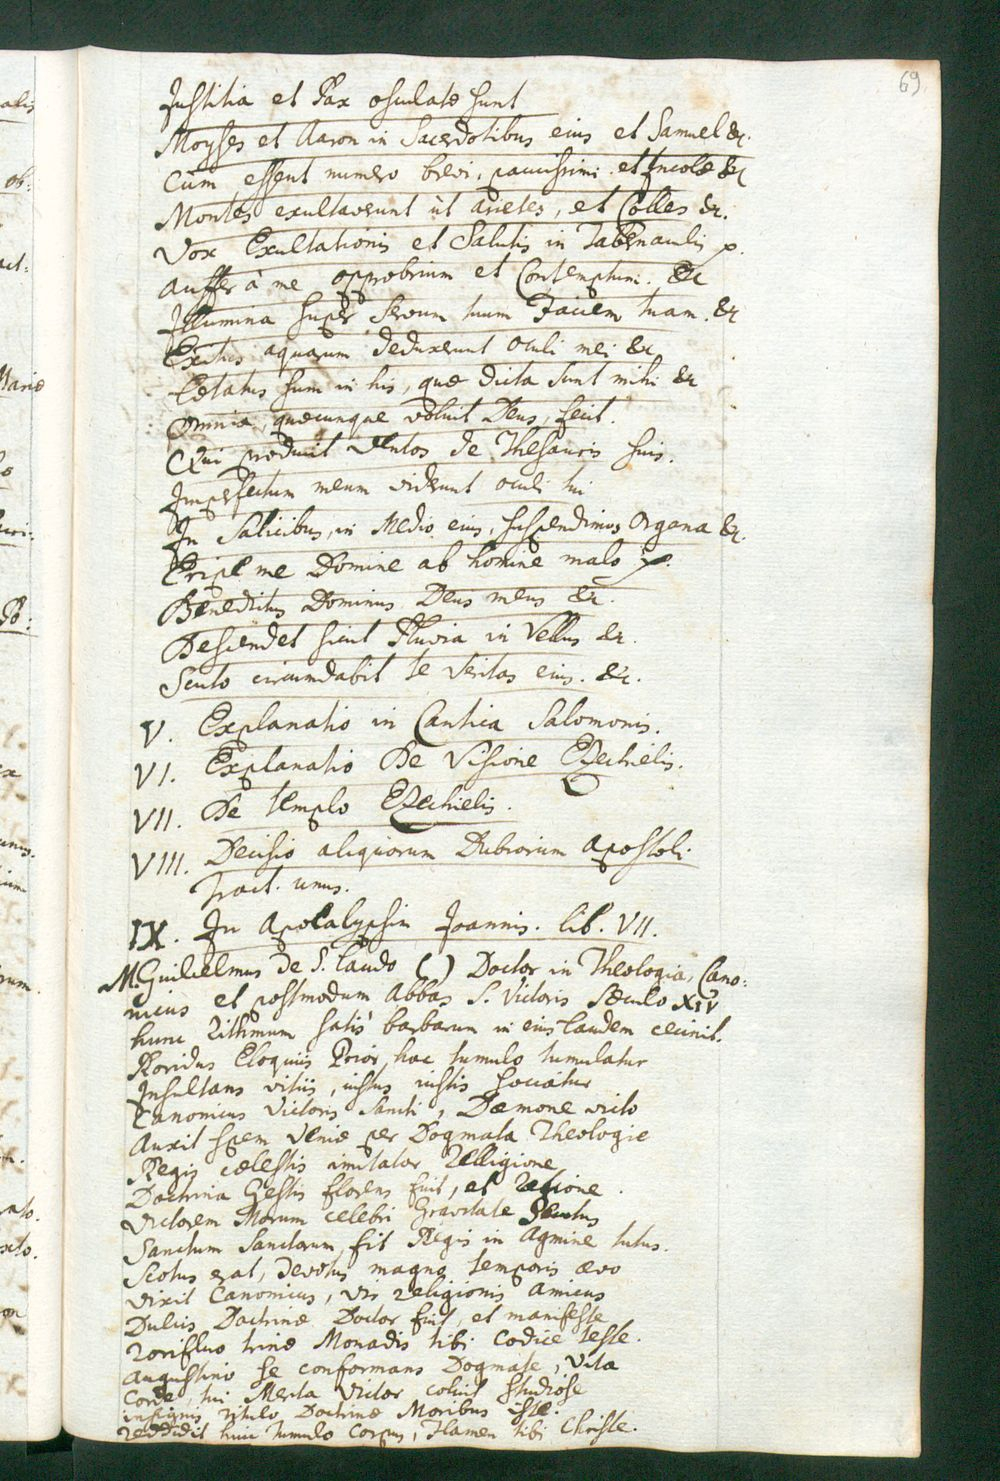 69
Justitia et Pax osculatæ sunt
Moyses et Aaron in Sacerdotibus eius et Samuel &c.
Cùm essent numero brevi, paucissimi et Incolæ &c
Montes exultaverunt ùt arietes, et Colles &c.
Vox Exultationis et Salutis in Tabernaculis
Auffer à me opprobrium et Contemptum. &c
Illumina super Servum tuum Faciem tuam. &c
Exitus aquarum deduxerunt oculi mei &c
Lætatus sum in his, quæ dicta sunt mihi &c
Omnia, quæcunque voluit Deus, fecit.
Qui producit Ventos de Thesauris suis.
Imperfectum meum viderunt oculi tui
In Salicibus, in Medio eius, suspendimus Organa &c.
Eripe me Domine ab homine malo
Benedictus Dominus Deus meus &c.
Descendet sicut Pluvia in Vellus &c.
Scuto circumdabit te Veritas eius. &c.
V. Explanatio in Cantica Salomonis.
VI. Explanatio De Visione Ezechielis.
VII. De templo Ezechielis.
VIII. Decisio aliquorum Dubiorum Apostoli.
Tract. unus.
IX. In Apocalypsin Joannis. lib. VII.
M. Guilielmus de S. Laudo ( ) Doctor in Theologia, Cano:
nicus et postmodum Abbas S. Victoris Sæculo XIV
hunc Rithmum satis barbarum in eius laudem cecinit.
Floridus Eloquiis Prior hac tumulo tumulatur
Insultans vitiis, iustus iustis sociatur
Canonicus Victoris Sancti, Dæmone victo
Auxit spem Veniæ per Dogmata Theologiæ
Regis cœlestis imitator Relligione
Doctrina Gestis florens fuit, et Ratione.
Victorem Morum celebri Gravitate
Sanctum Sanctorum fit Regis in Agmine tutus.
Scotus erat, devotus magno temporis ævo
Vixit Canonicus, Vir religionis amicus
Dulcis Doctrinæ Doctor fuit, et manifeste
rorifluo trinæ Monadis tibi Codice teste.
Augustino se conformans Dogmate, Vita
Corde, tui Merita Victor coluit studiose
insignis titulo Doctrinæ Moribus iste.
reddidit huic tumulo Corpus, Flamen tibi Christe.